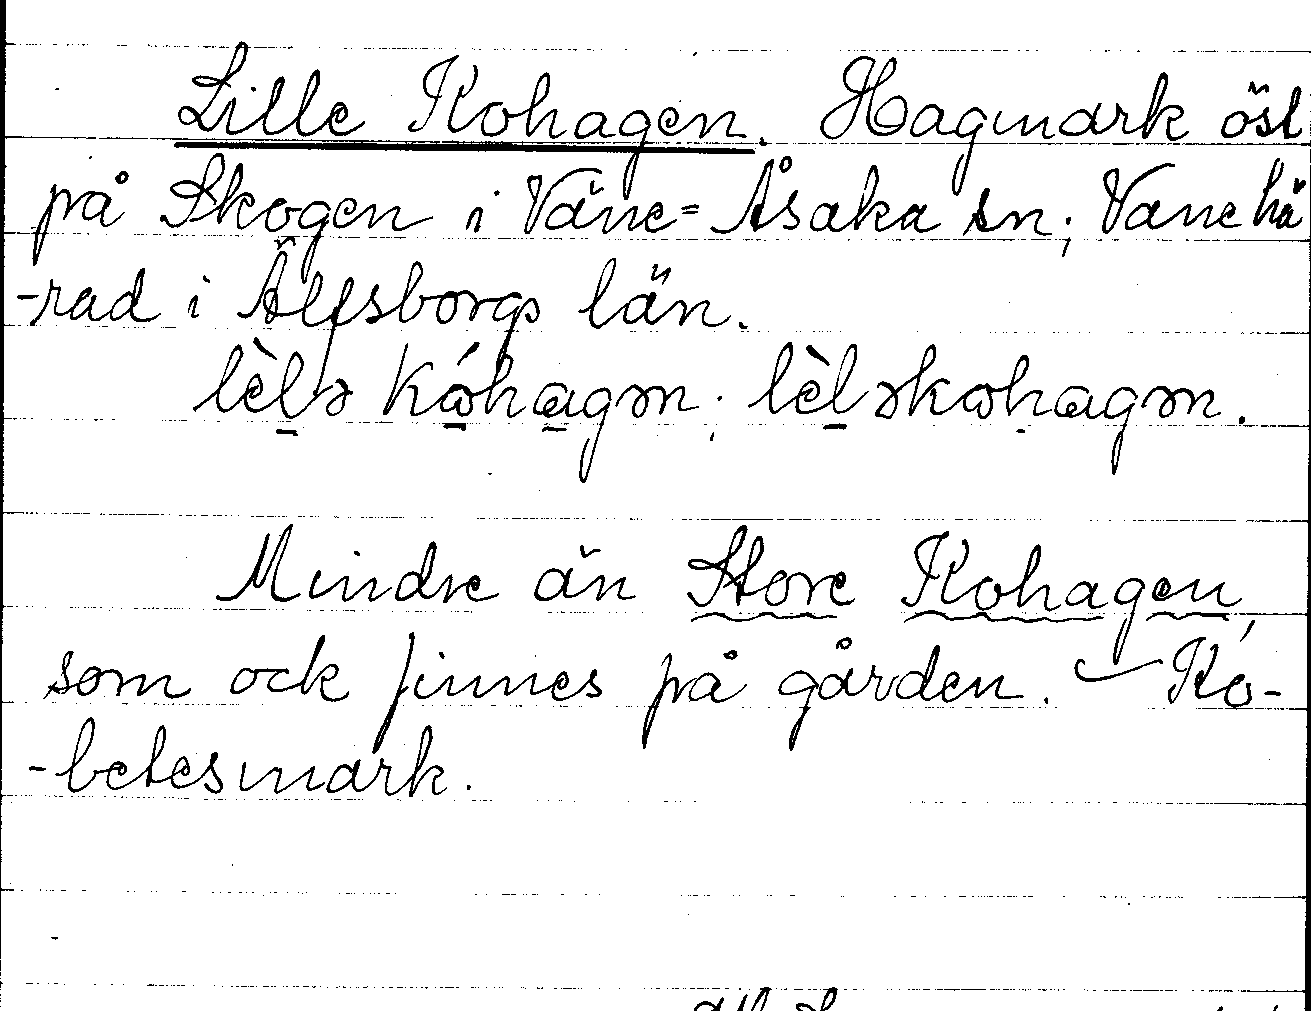 Lille Kohagen. Hagmark öst
på Skogen i Väne=Åsaka sn; Vane hä
-rad i Älfsborgs län.
lèlə kóhagən; lèləkohagən.
Mindre än Store Kohagen,
som ock finnes på gården. – Ko-
-betesmark.